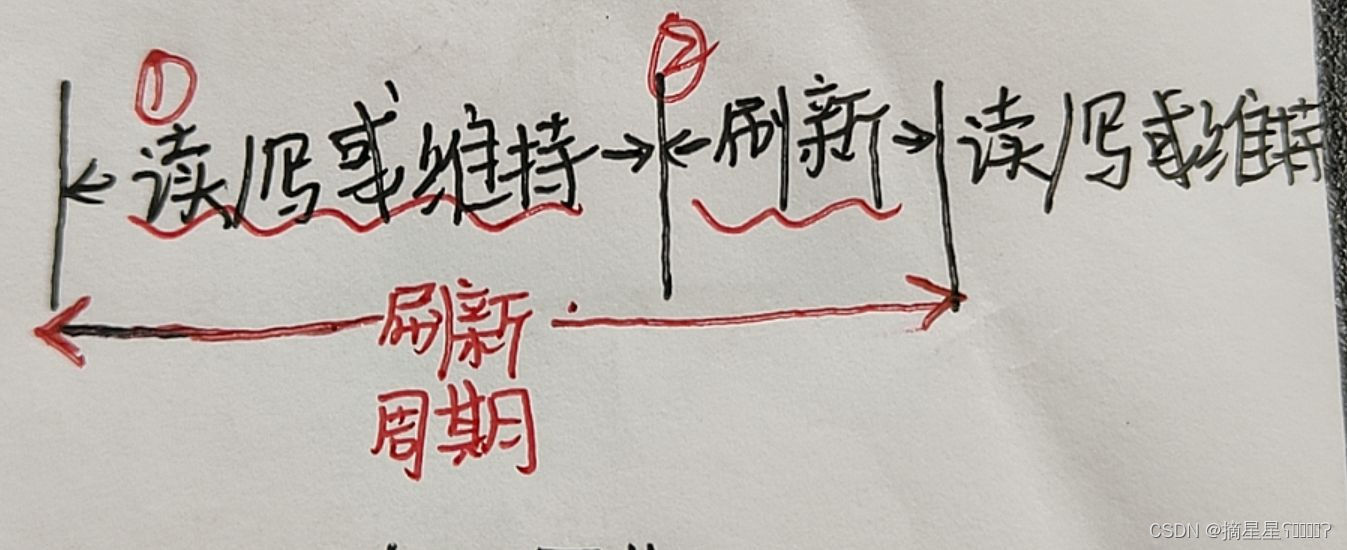 ① ②
读/写或维持 刷新 读/写或维持
刷新
周期
CSDN @摘星星